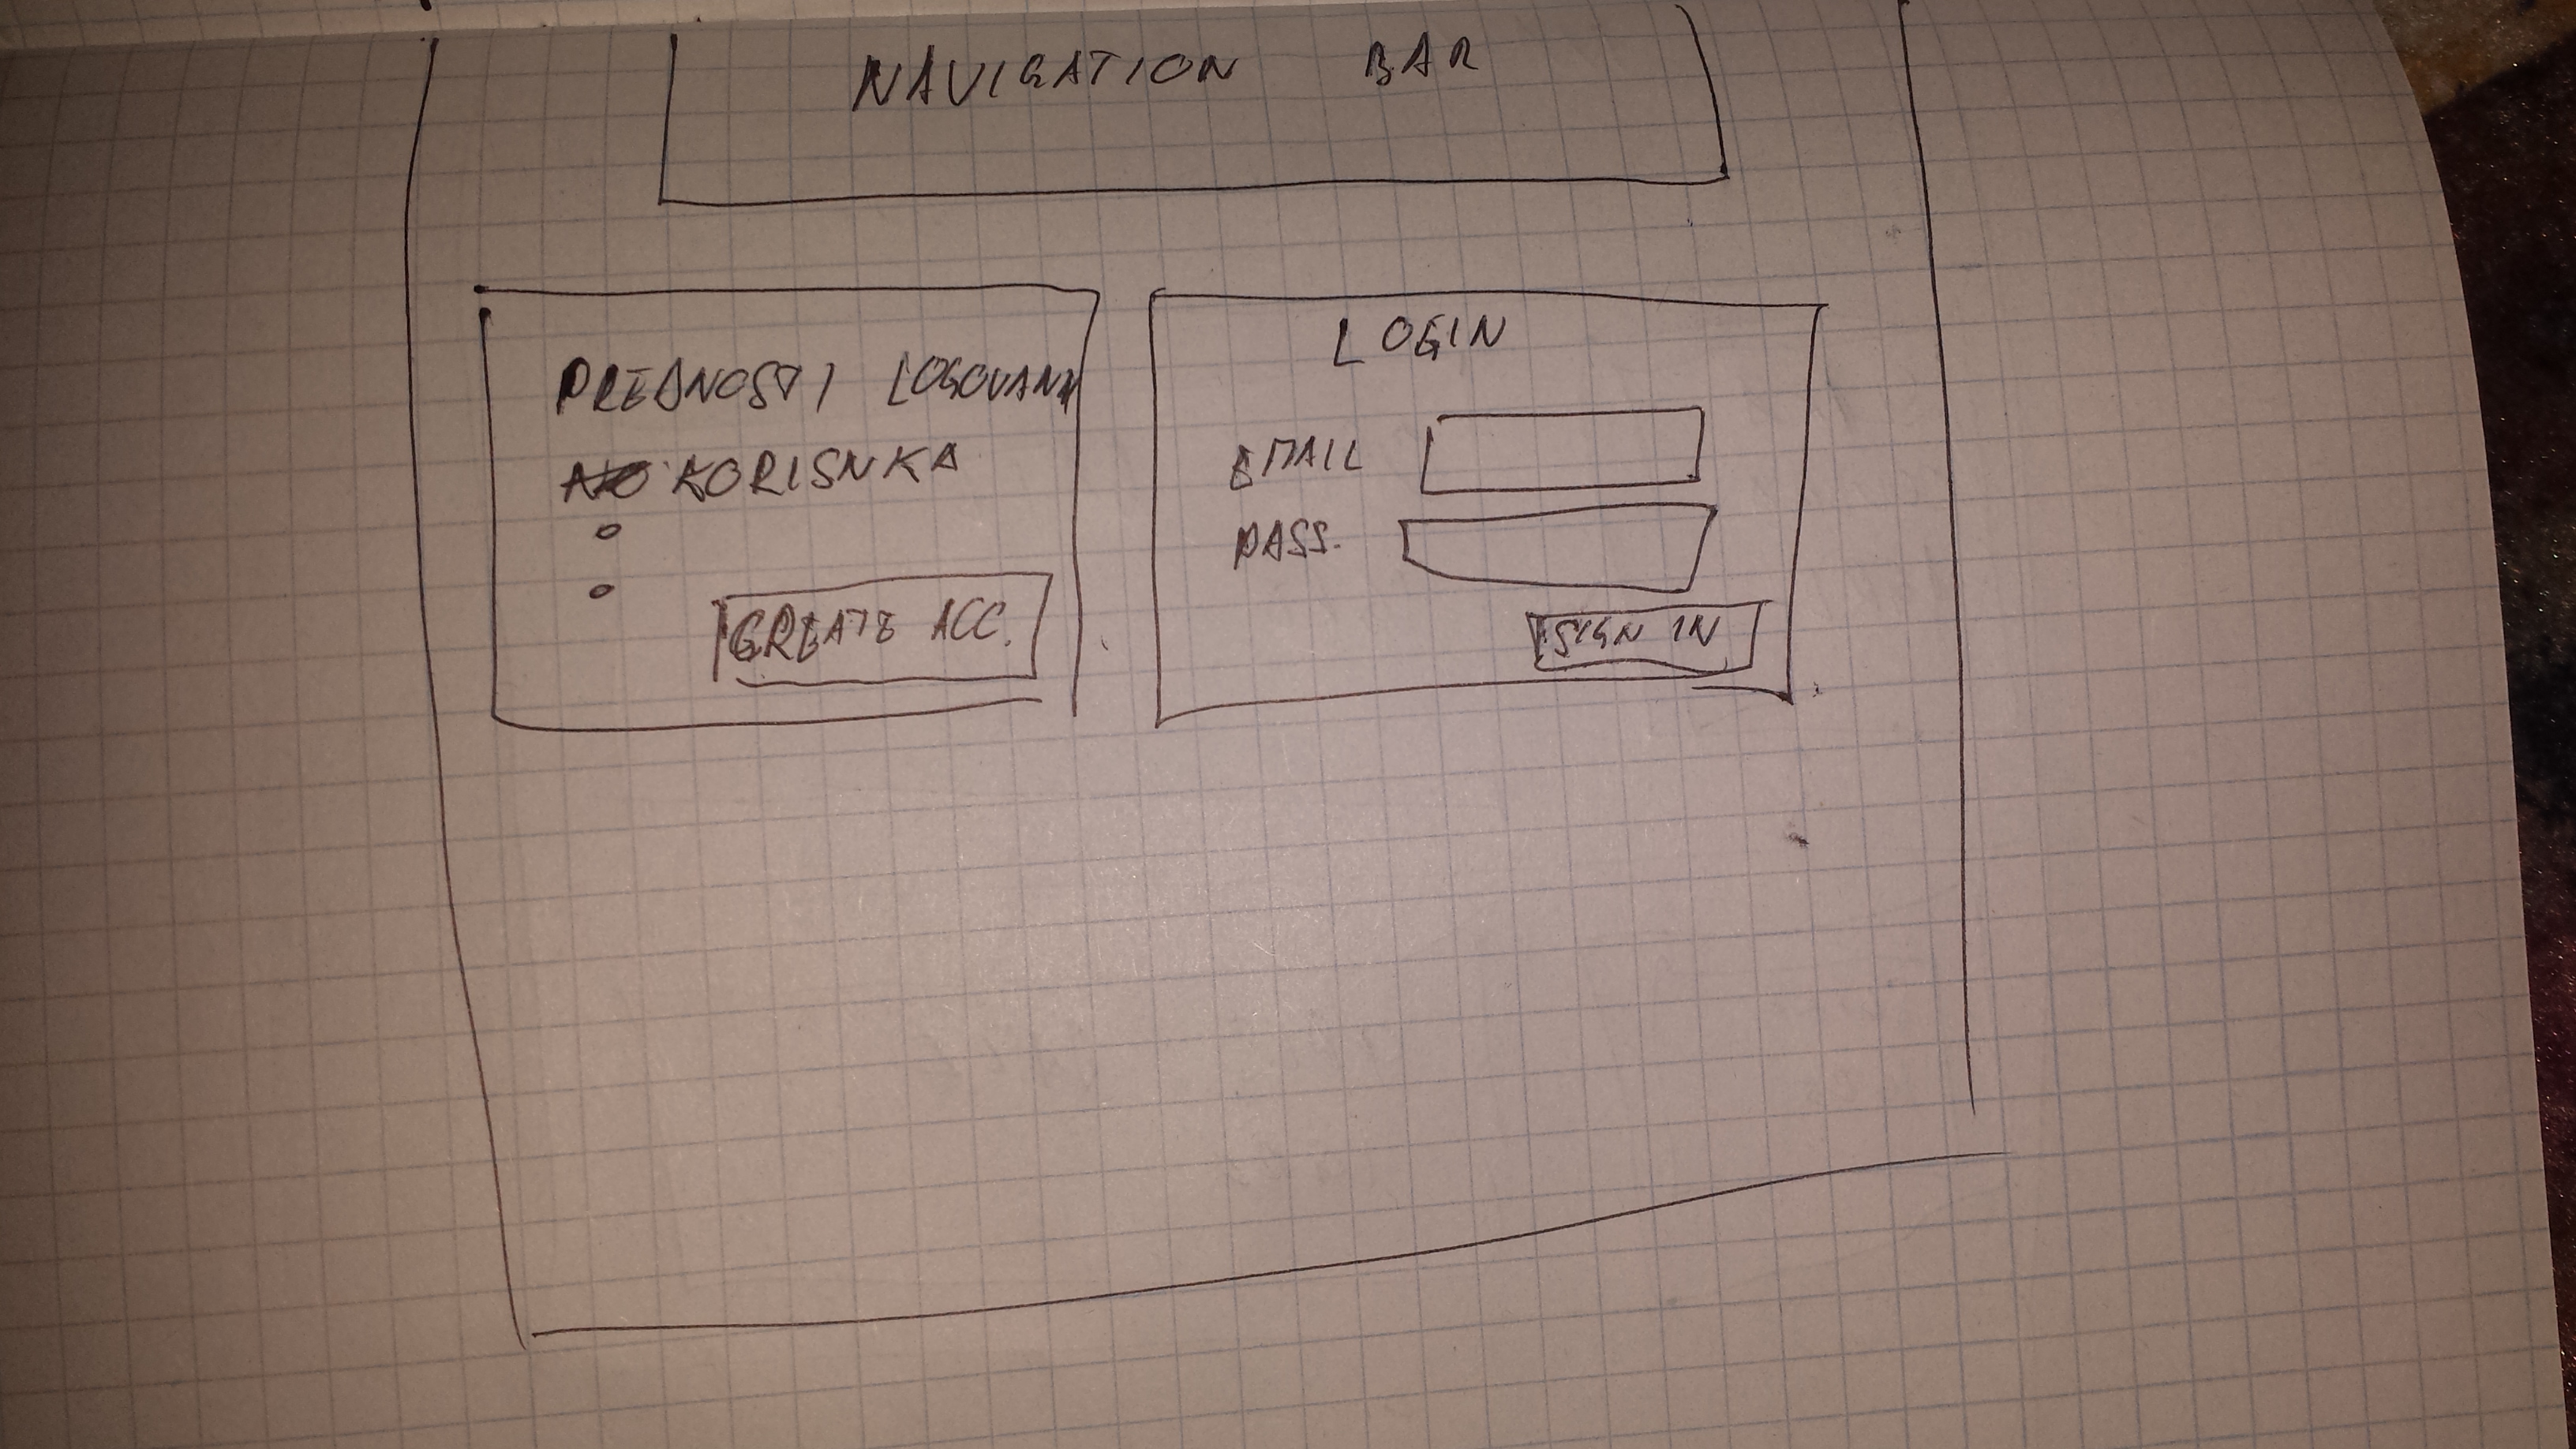 NAVIGATION BAR
PREDNOSTI LOGOVANJA
KORISNKA
CREATE ACC.
LOGIN
EMAIL
PASS.
SIGN IN